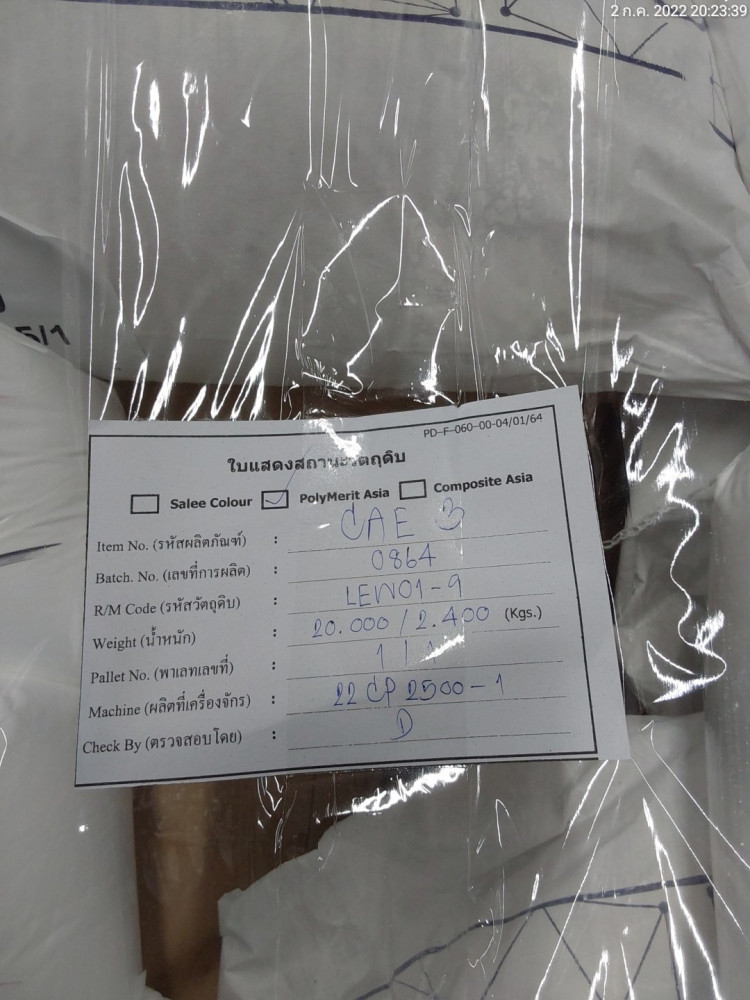 2 ก.ค. 2022 20:23:39
5/1
PD-F-060-00-04/01/64
ใบแสดงสถานะวัตถุดิบ
Salee Colour PolyMerit Asia Composite Asia
Item No. (รหัสผลิตภัณฑ์) : CAE 3
Batch. No. (เลขที่การผลิต) : 0864
R/M Code (รหัสวัตถุดิบ) : LEW01-9
Weight (น้ำหนัก) : 20.000 / 2.400 (Kgs.)
Pallet No. (พาเลทเลขที่) : 1 / 1
Machine (ผลิตที่เครื่องจักร) : 22 CP 2500-1
Check By (ตรวจสอบโดย) : D